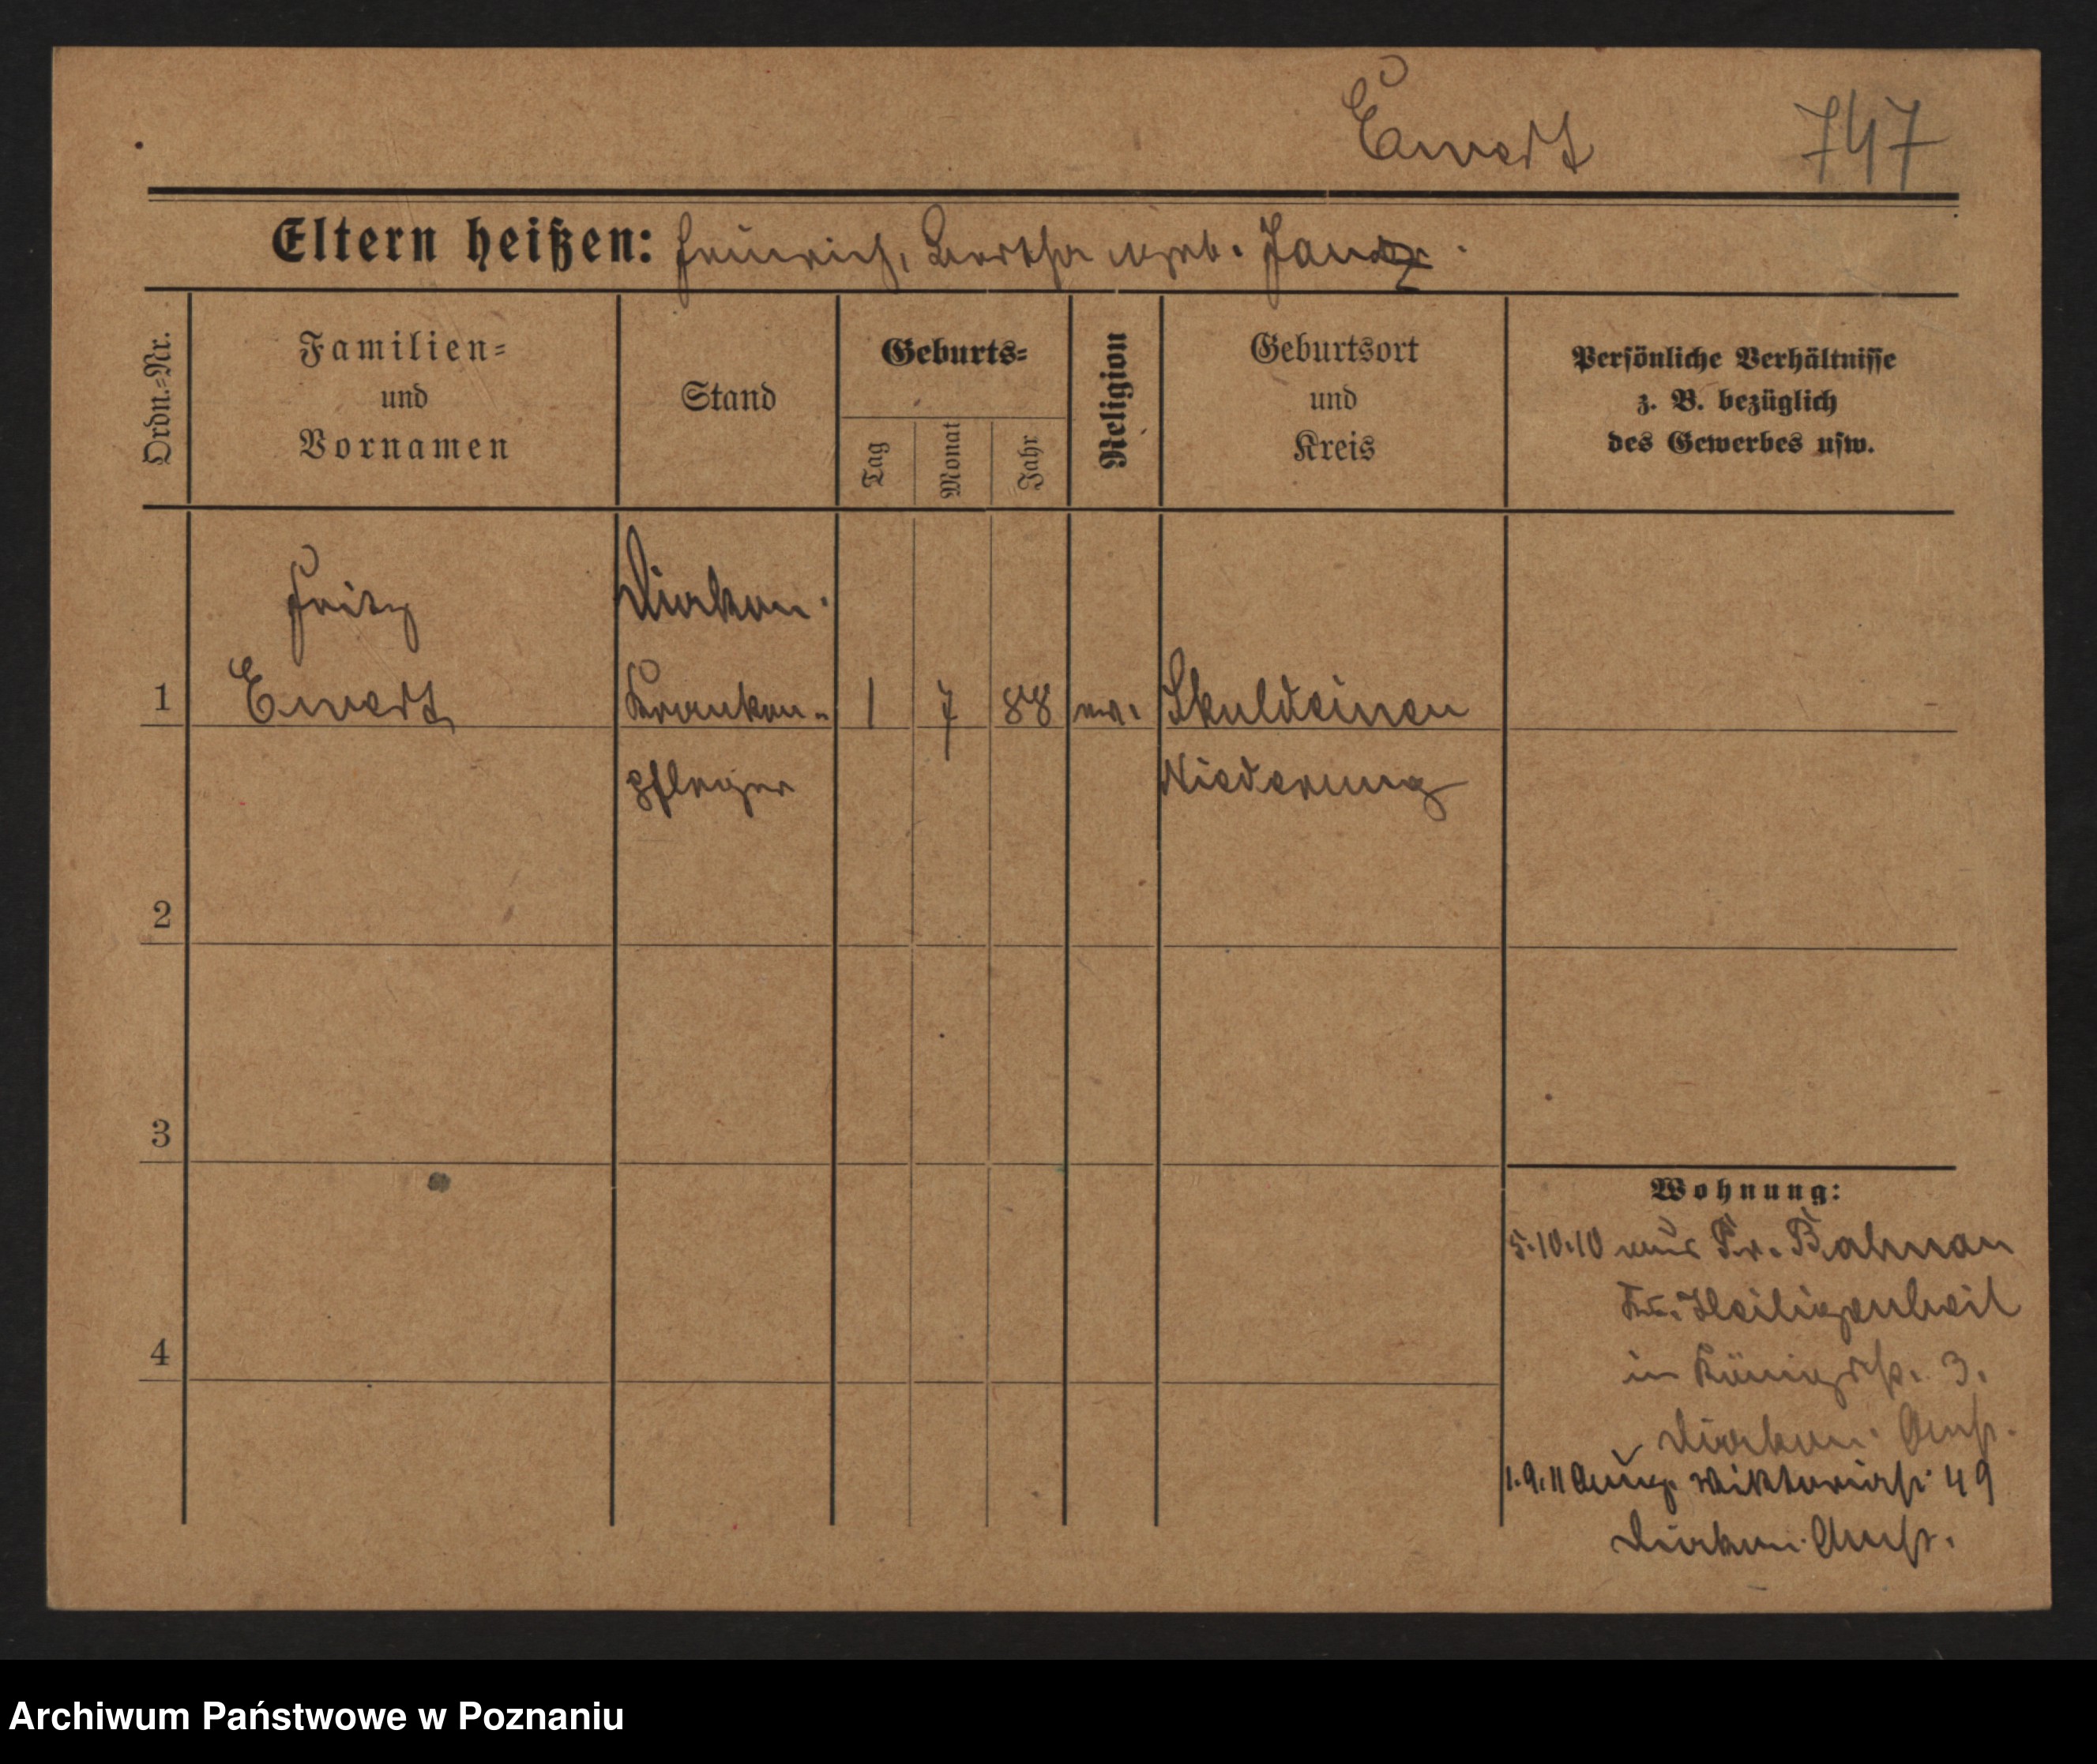 Ewert 747
Eltern heißen: Heinrich, Bertha geb. Janz
Ordn.-Nr.
Familien-
und
Vornamen
Stand
Geburts-
Tag
Monat
Jahr
Religion
Geburtsort
und
Kreis
Persönliche Verhältnisse
z. B. bezüglich
des Gewerbes usw.
Fritz Diakon.
1 Ewert, Kranken- 1 7 88 ev. Skuldeinen
pfleger Niederung
2
3
4
Wohnung:
5.10.10 aus Pr. Bahnau
Kr. Heiligenbeil
in Königstr. 3.
Diakon. Anst.
1.9.11 Ausg. Viktoriastr 49
Diakon. Anst.
Archiwum Państwowe w Poznaniu